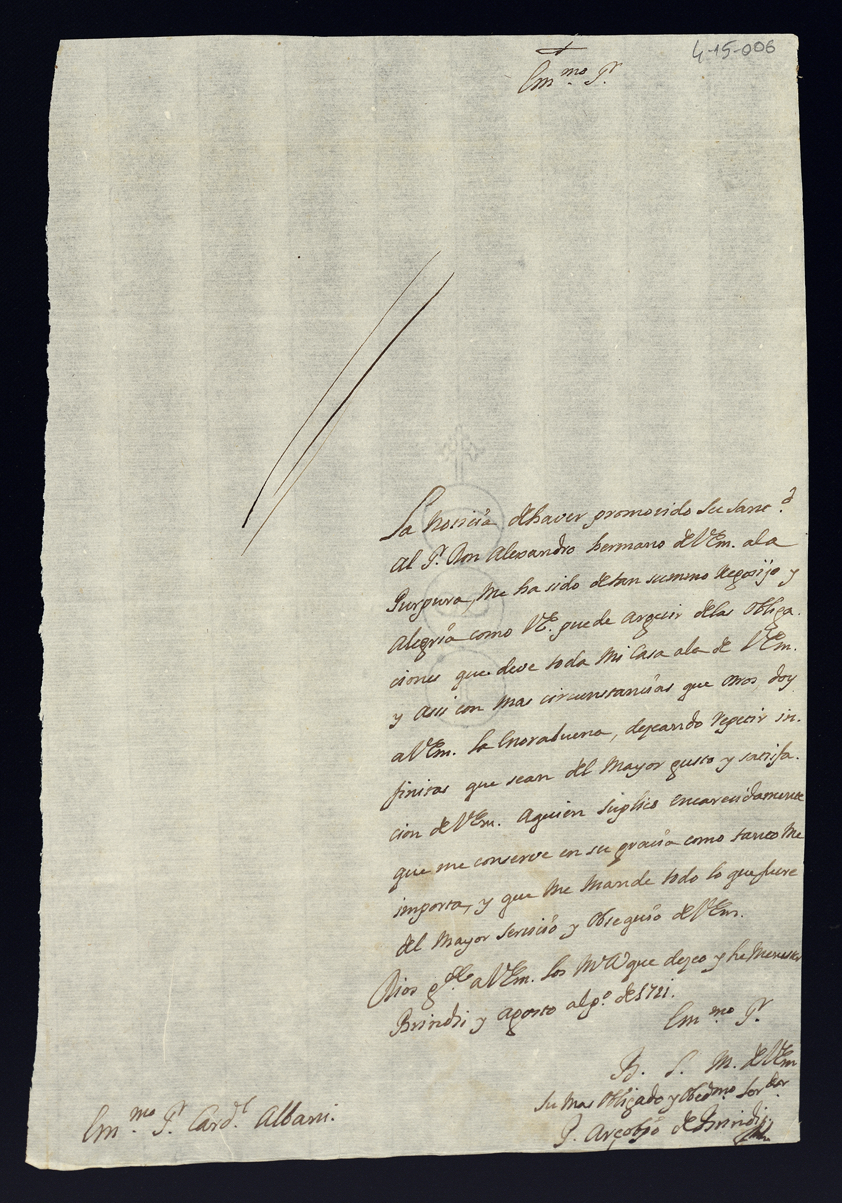 4-15-006
Em.mo S.r
La noticia de haver promovido Su Sant.d
al S.r Don Alexandro hermano de V.Em. ala
Purpura, me ha sido de tan summo regosijo y
alegria como V.E. puede arguir delas obliga-
ciones que deve toda mi casa ala de V.Em.
y assi con mas circunstancias que otros, doy
a V.Em. la enorabuena, deseando repetir in-
finitas que sean del mayor gusto y satisfa-
cion de V.Em. aquien suplico encarecidamente
que me conserve en su gracia como tanto me
importa, y que me mande todo lo que fuere
del mayor servicio y obsequio de V.Em.
Dios g.de a V.Em. los m.s a.s que deseo y he menester
Brindis y agosto al p.o de 1721.
Em.mo S.r
B. L. M. de V.Em
su mas obligado y obed.mo ser.dor
P. Arçobpo de Brindis
Em.mo S.r Card.l Albani.